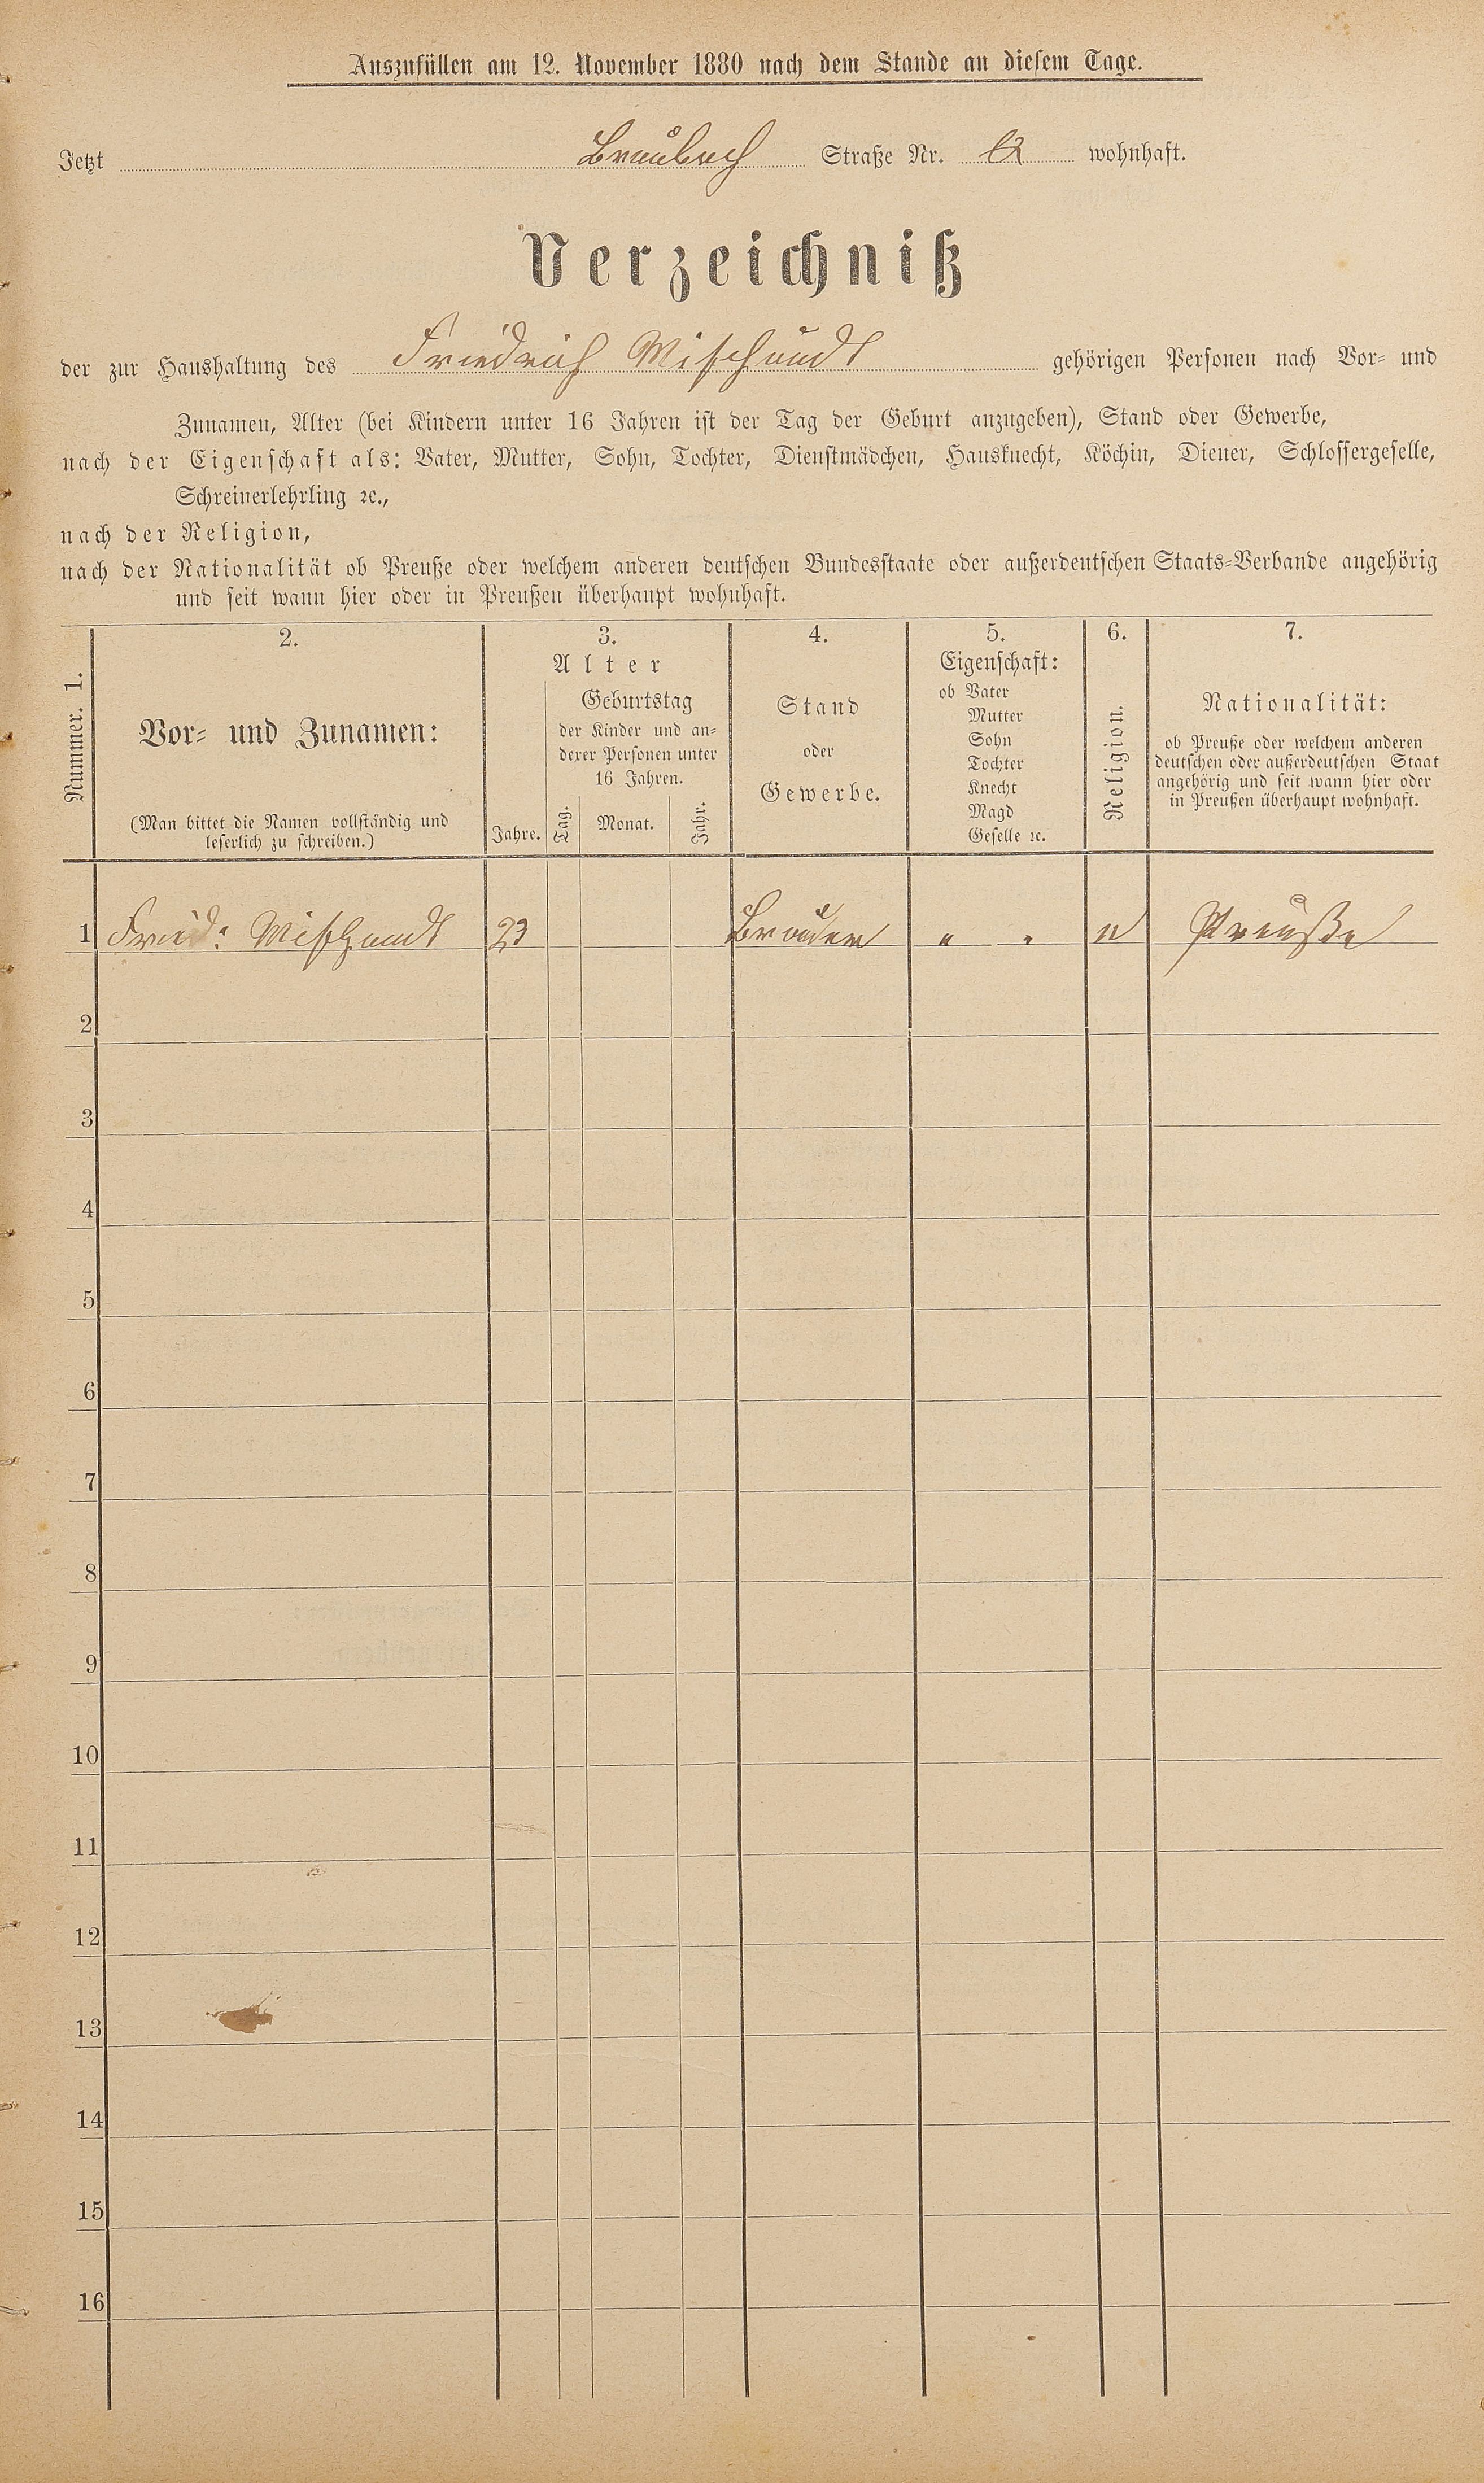 Auszufüllen am 12. November 1880 nach dem Stande an diesem Tage.
Jetzt Braubach Straße Nr. wohnhaft.
Verzeichniß
der zur Haushaltung des Friedrich gehörigen Personen nach Vor- und
Zunamen, Alter (bei Kindern unter 16 Jahren ist der Tag der Geburt anzugeben), Stand oder Gewerbe,
nach der Eigenschaft als: Vater, Mutter, Sohn, Tochter, Dienstmädchen, Hausknecht, Köchin, Diener, Schlossergeselle,
Schreinerlehrling ꝛc.,
nach der Religion,
nach der Nationalität ob Preuße oder welchem anderen deutschen Bundesstaate oder außerdeutschen Staats-Verbande angehörig
und seit wann hier oder in Preußen überhaupt wohnhaft.
Nummer. 1.
2.
Vor- und Zunamen:
(Man bittet die Namen vollständig und
leserlich zu schreiben.)
3.
Alter
Jahre.
Geburtstag
der Kinder und an-
derer Personen unter
16 Jahren.
Tag.
Monat.
Jahr.
4.
Stand
oder
Gewerbe.
5.
Eigenschaft:
ob Vater
Mutter
Sohn
Tochter
Knecht
Magd
Geselle ꝛc.
6.
Religion.
7.
Nationalität:
ob Preuße oder welchem anderen
deutschen oder außerdeutschen Staat
angehörig und seit wann hier oder
in Preußen überhaupt wohnhaft.
1 Fried: 23 " " Preuße
2
3
4
5
6
7
8
9
10
11
12
13
14
15
16